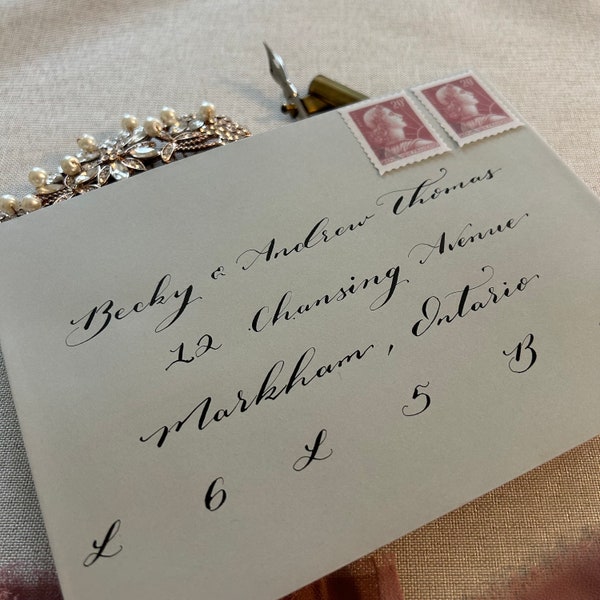 Becky & Andrew Thomas
12 Chansing Avenue
Markham, Ontario
L 6 L 5 B